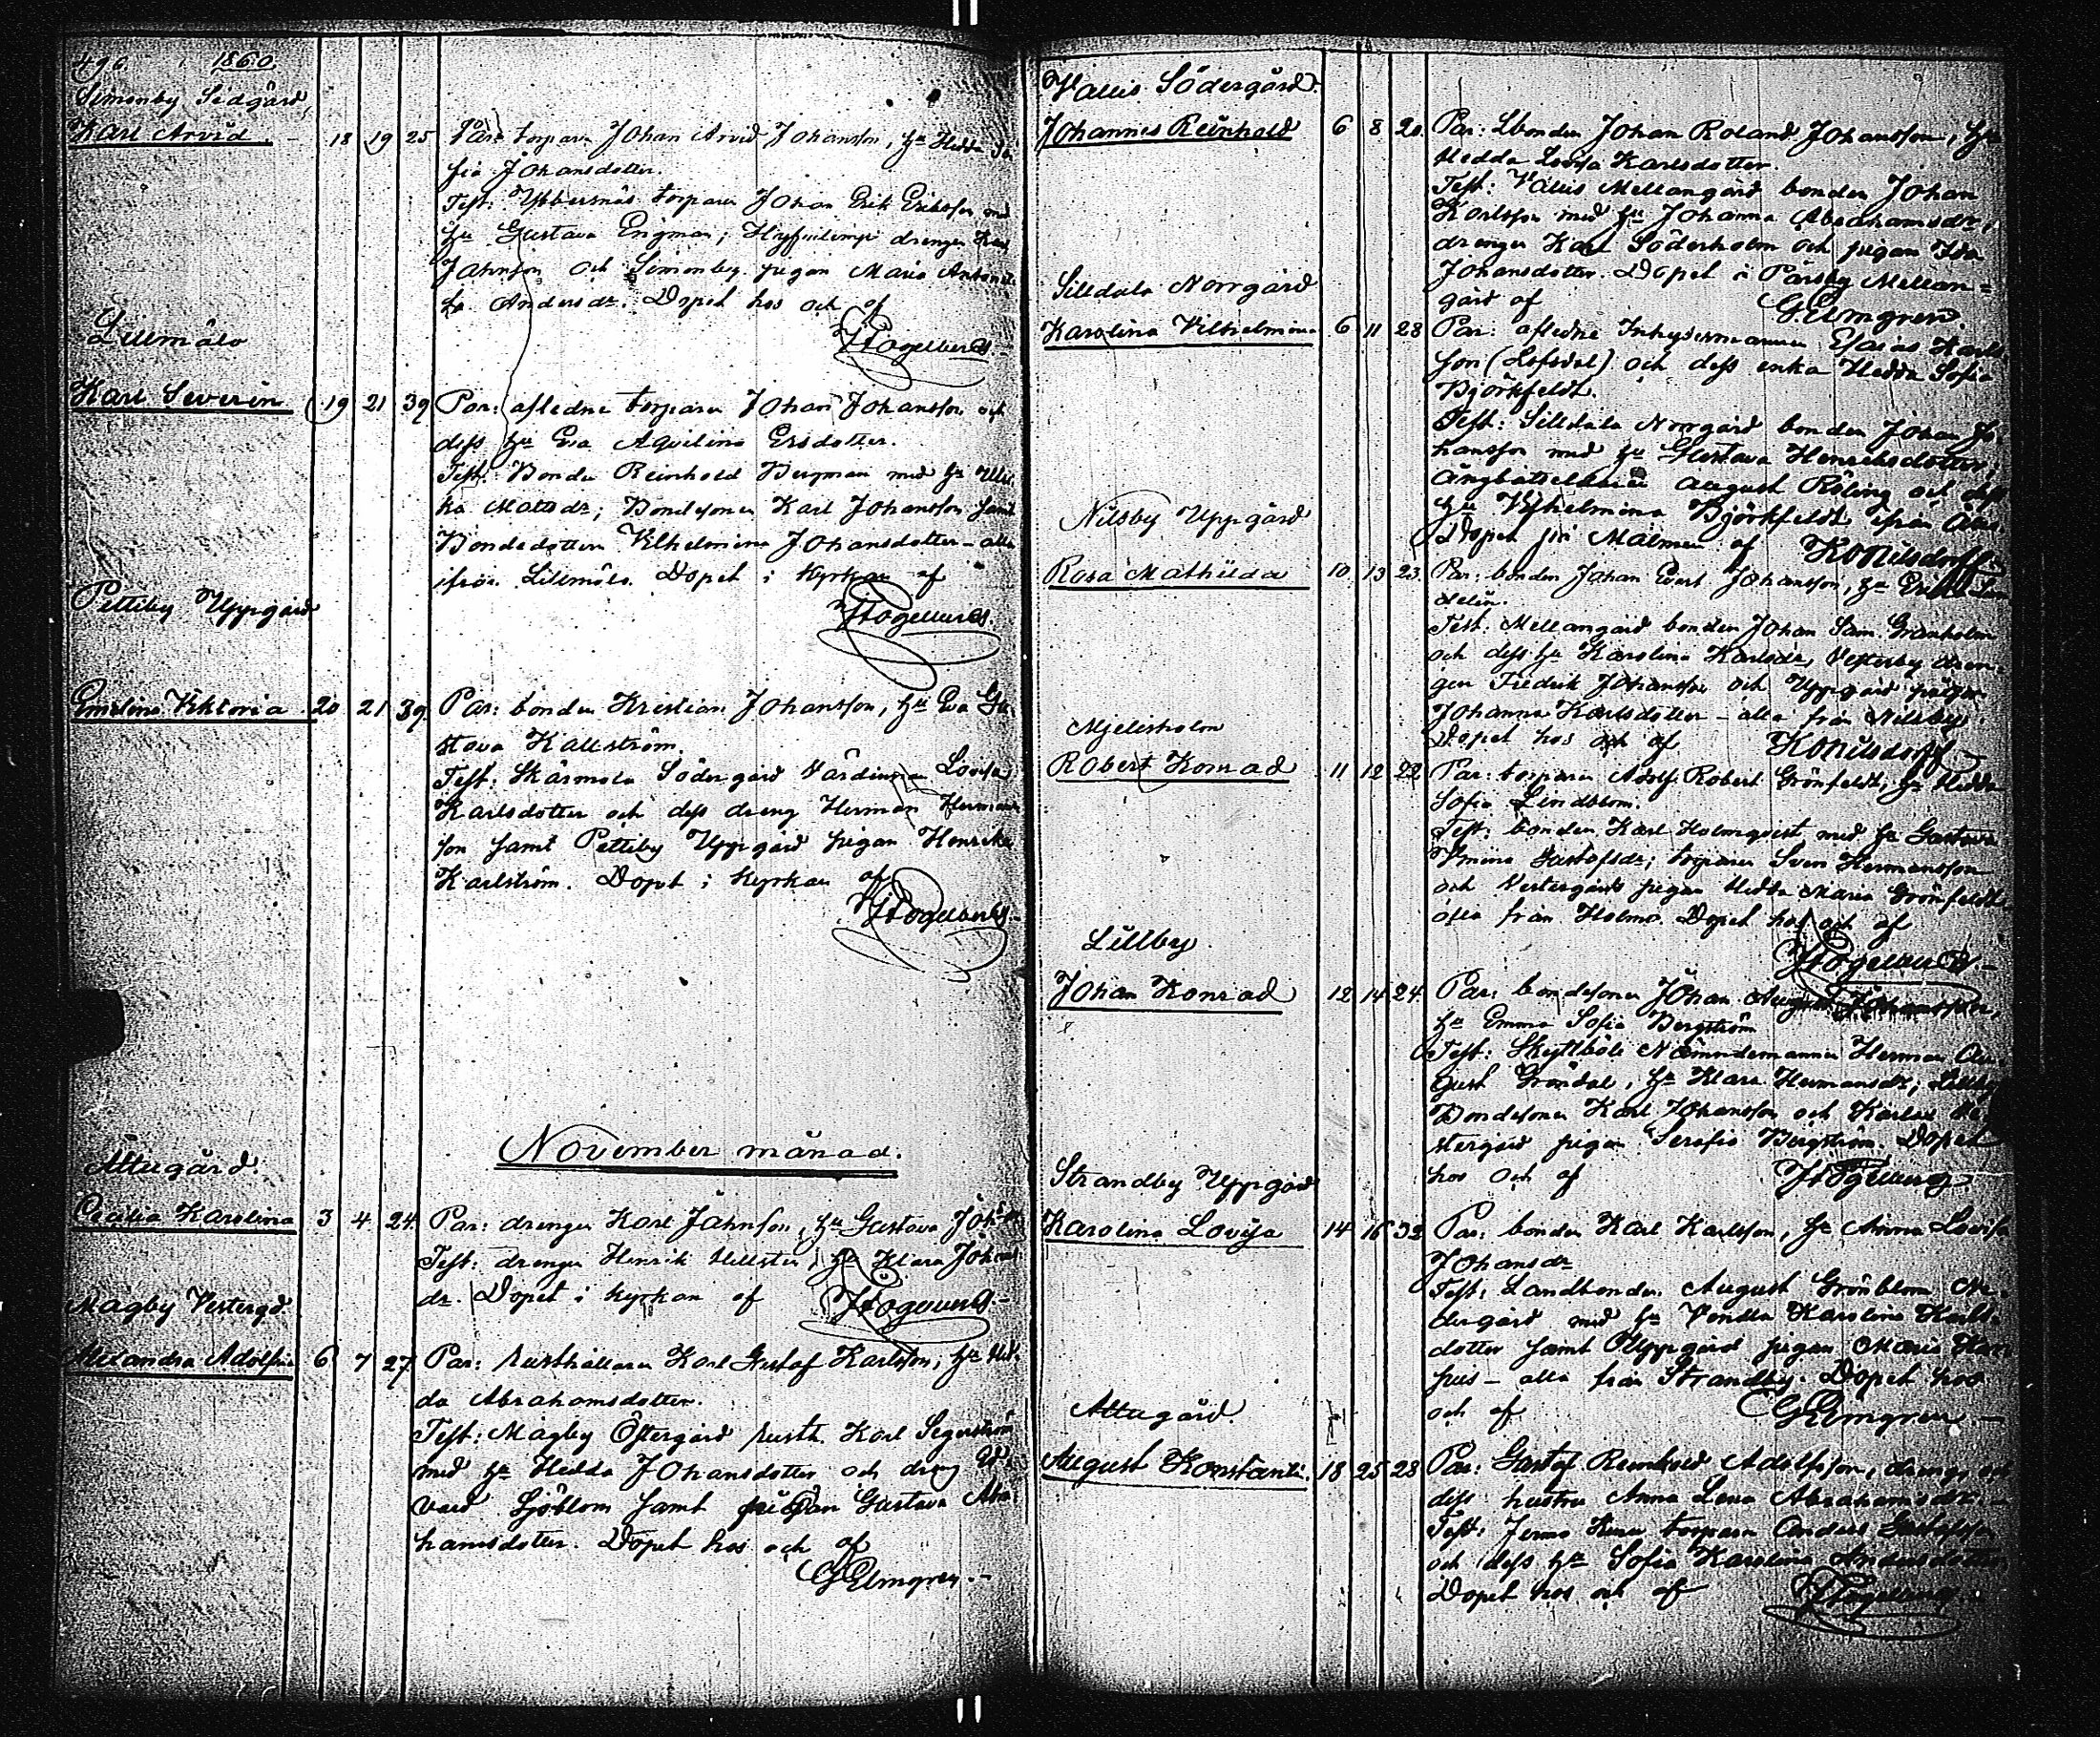 496. 1860
Simonby Sidgård,
Karl Arvid 18 19 25 Par: torparn Johan Arvid Johansson, hu Hedda So
fia Johansdotter.
Test: Ybbersnäs torparn Johan Erik Eriksson med
hu Gustava Engman; drengen Karl
Jahnson och Simonby pigan Maria Antonet
ta Andersdr. Dopet hos och af
JFogelberg
Lillmälo
Karl Severin 19 21 39 Par: afledne torparn Johan Johansson och
dess hu Eva Aqvilina Ersdotter.
Test: Bonden Reinhold Bergman med hu Ulri
ka Mattsdr; Bondesonen Karl Johansson samt
Bondedottern Vilhelmina Johansdotter – alla
ifrån Lillmälo. Dopet i Kyrkan af
JFogelberg.
Pettiby Uppgård
Emelina Viktoria 20 21 39. Par: bonden Kristian Johansson, hu Eva Gu
stava Kallström.
Test: Skärmola Södergård Värdinnan Lovisa
Karlsdotter och dess dreng Herman Hermans
son samt Pettiby Uppgård pigan Henrika
Karlström. Dopet i Kyrkan af
JFogelberg
November månad.
Attugård.
Cecilia Karolina 3 4 24. Par: drengen Karl Jahnson, hu Gustava Joh:dr
Test: drengen Henrik Hellsten, hu Klara Johans
dr. Dopet i Kyrkan af JFogelberg.
Mågby Vestergd
Alexandra Adolfina 6 7 27 Par: rusthållaren Karl Gustaf Karlsson, hu Hed
da Abrahamsdotter.
Test: Mågby Östergård rusth. Karl Segerström
med hu Hedda Johansdotter och dreng Ed
vard Sjöblom samt pigan Gustava Abra
hamsdotter. Dopet hos och af
GElmgren.
Vallis Södergård.
Johannes Reinhold 6 8 20. Par: Lbonden Johan Roland Johansson, hu
Hedda Lovisa Karlsdotter.
Test: Vallis Mellangård bonden Johan
Karlsson med hu Johanna Abrahamsdr,
drengen Karl Söderholm och pigan Ida
Johansdotter. Dopet i Pärsby Mellan=
gård af GElmgren.
Silldala Norrgård
Karolina Vilhelmina 6 11 28 Par: afledne Inhysesmannen Esaias Karls
son (Lofsdal) och dess enka Hedda Sofia
Björkfeldt.
Test: Silldala Norrgård bonden Johan Jo
hansson med hu Gustava Henriksdotter;
August Röling och dess
hu Vilhelmina Björkfeldt ifrån Åbo.
Dopet på Malmen af KONilsdorff
Nilsby Uppgård
Rosa Mathilda 10 13 23. Par: bonden Johan Evert Johansson, hu Erika Sun
delin.
Test: Mellangård bonden Johan Sam. Granholm
och dess hu Karolina Karlsdr, Vesterby dren-
gen Fredrik Johansson och Uppgård pigan
Johanna Karlsdotter – alla från Nilsby.
Dopet hos och af KONilsdorff
Mjelisholm
Robert Konrad 11 12 22 Par: torparen Adolf Robert Grönfeldt, hu Hedda
Sofia Lindblom.
Test: bonden Karl Holmqvist med hu Gustava
Vmina Gustafsdr; torparen Sven Hermansson
och Vestergård pigan Hedda Maria Grönfeldt
alla från Holmo. Dopet hos och af
JFogelberg.
Lillby
Johan Konrad 12 14 24 Par: bondesonen Johan August Johansson,
hu Emma Sofia Bergström
Test: Skyttböle Nämndemannen Herman Au-
gust Gröndal, hu Klara Hermansdr; Lillby
Bondesonen Karl Johansson och Ve
stergård pigan Serafia Bergström. Dopet
hos och af JFogelberg
Strandby Uppgård
Karolina Lovisa 14 16 32 Par: bonden Karl Karlsson, hu Anna Lovisa
Johansdr
Test: Landbonden August Grönblom Ne-
dergård med hu Vendla Karolina Karls-
dotter samt Uppgård pigan Maria
– alla från Strandby. Dopet hos
och af GElmgren
Attugård.
August Konstantin. 18 25 28 Par: Gustaf Reinhold Adolfsson, dreng, och
dess hustru Anna Lena Abrahamsdr.
Test: Jermo torparn Anders Gustafsson
och dess hu Sofia Karolina Andersdotter.
Dopet hos och af JFogelberg.